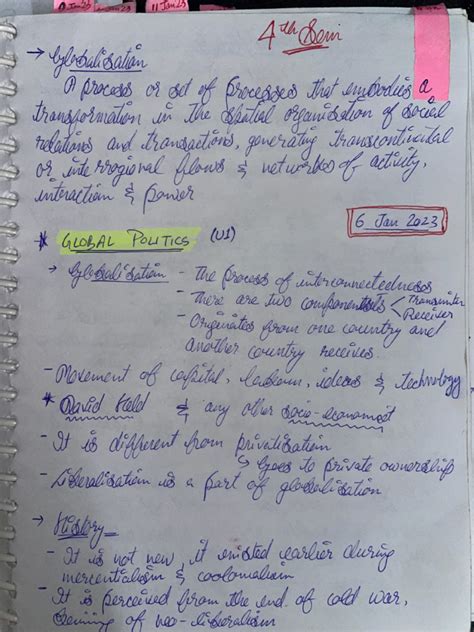 11 Jan 23
4th Sem
→ Globalisation
A process or set of processes that embodies a
transformation in the spatial organisation of social
relations and transactions, generating transcontinental
or interregional flows & networks of activity,
interaction & power
6 Jan 2023
* GLOBAL POLITICS (U1)
→ Globalisation - The process of interconnectedness
- There are two components < Transmitter
Receiver
- Originates from one country and
another country receives.
- Movement of capital, labour, ideas & technology
* David Held & any other socio-economist
- It is different from privitisation
↳ Goes to private ownership
- Liberalisation is a part of globalisation
→ History
- It is not new, it existed earlier during
mercentialism & coolonialism
- It is perceived from the end of cold war,
of neo-liberalism